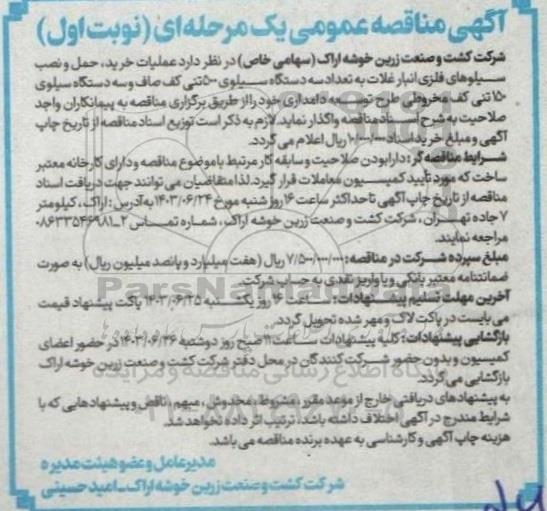 آگهی مناقصه عمومی یک مرحله‌ای (نوبت اول)
شرکت کشت و صنعت زرین خوشه اراک (سهامی خاص) در نظر دارد عملیات خرید، حمل و نصب
سیلوهای فلزی انبار غلات به تعداد سه دستگاه سیلوی ۵۰۰ تنی کف صاف و سه دستگاه سیلوی
۱۵۰ تنی کف مخروطی طرح توسعه دامداری خود را از طریق برگزاری مناقصه به پیمانکاران واجد
صلاحیت به شرح اسناد مناقصه واگذار نماید. لازم به ذکر است توزیع اسناد مناقصه از تاریخ چاپ
آگهی و مبلغ خرید اسناد ۱۰/۰۰۰/۰۰۰ ریال اعلام می گردد.
شرایط مناقصه گر: دارا بودن صلاحیت و سابقه کار مرتبط با موضوع مناقصه و دارای کارخانه معتبر
ساخت که مورد تأیید کمیسیون معاملات قرار گیرد. لذا متقاضیان می توانند جهت دریافت اسناد
مناقصه از تاریخ چاپ آگهی تا حداکثر ساعت ۱۶ روز شنبه مورخ ۱۴۰۳/۰۶/۲۴ به آدرس: اراک، کیلومتر
۷ جاده تهران، شرکت کشت و صنعت زرین خوشه اراک، شماره تماس ۲_۰۸۶۳۳۵۴۶۹۸۱
مراجعه نمایند.
مبلغ سپرده شرکت در مناقصه: ۷/۵۰۰/۰۰۰/۰۰۰ ریال (هفت میلیارد و پانصد میلیون ریال) به صورت
ضمانتنامه معتبر بانکی و یا واریز نقدی به حساب شرکت.
آخرین مهلت تسلیم پیشنهادات: ساعت ۱۶ روز یکشنبه ۱۴۰۳/۰۶/۲۵ پاکت پیشنهاد قیمت
می بایست در پاکت لاک و مهر شده تحویل گردد.
بازگشایی پیشنهادات: کلیه پیشنهادات ساعت ۱۱ صبح روز دوشنبه ۱۴۰۳/۰۶/۲۶ در حضور اعضای
کمیسیون و بدون حضور شرکت کنندگان در محل دفتر شرکت کشت و صنعت زرین خوشه اراک
بازگشایی می گردد.
به پیشنهادهای دریافتی خارج از موعد مقرر، مشروط، مخدوش، مبهم، ناقص و پیشنهادهایی که با
شرایط مندرج در آگهی اختلاف داشته باشد، ترتیب اثر داده نخواهد شد.
هزینه چاپ آگهی و کارشناسی به عهده برنده مناقصه می باشد.
مدیرعامل و عضو هیئت مدیره
شرکت کشت و صنعت زرین خوشه اراک_امید حسینی
ParsNamadData
پایگاه اطلاع رسانی مناقصه و مزایده